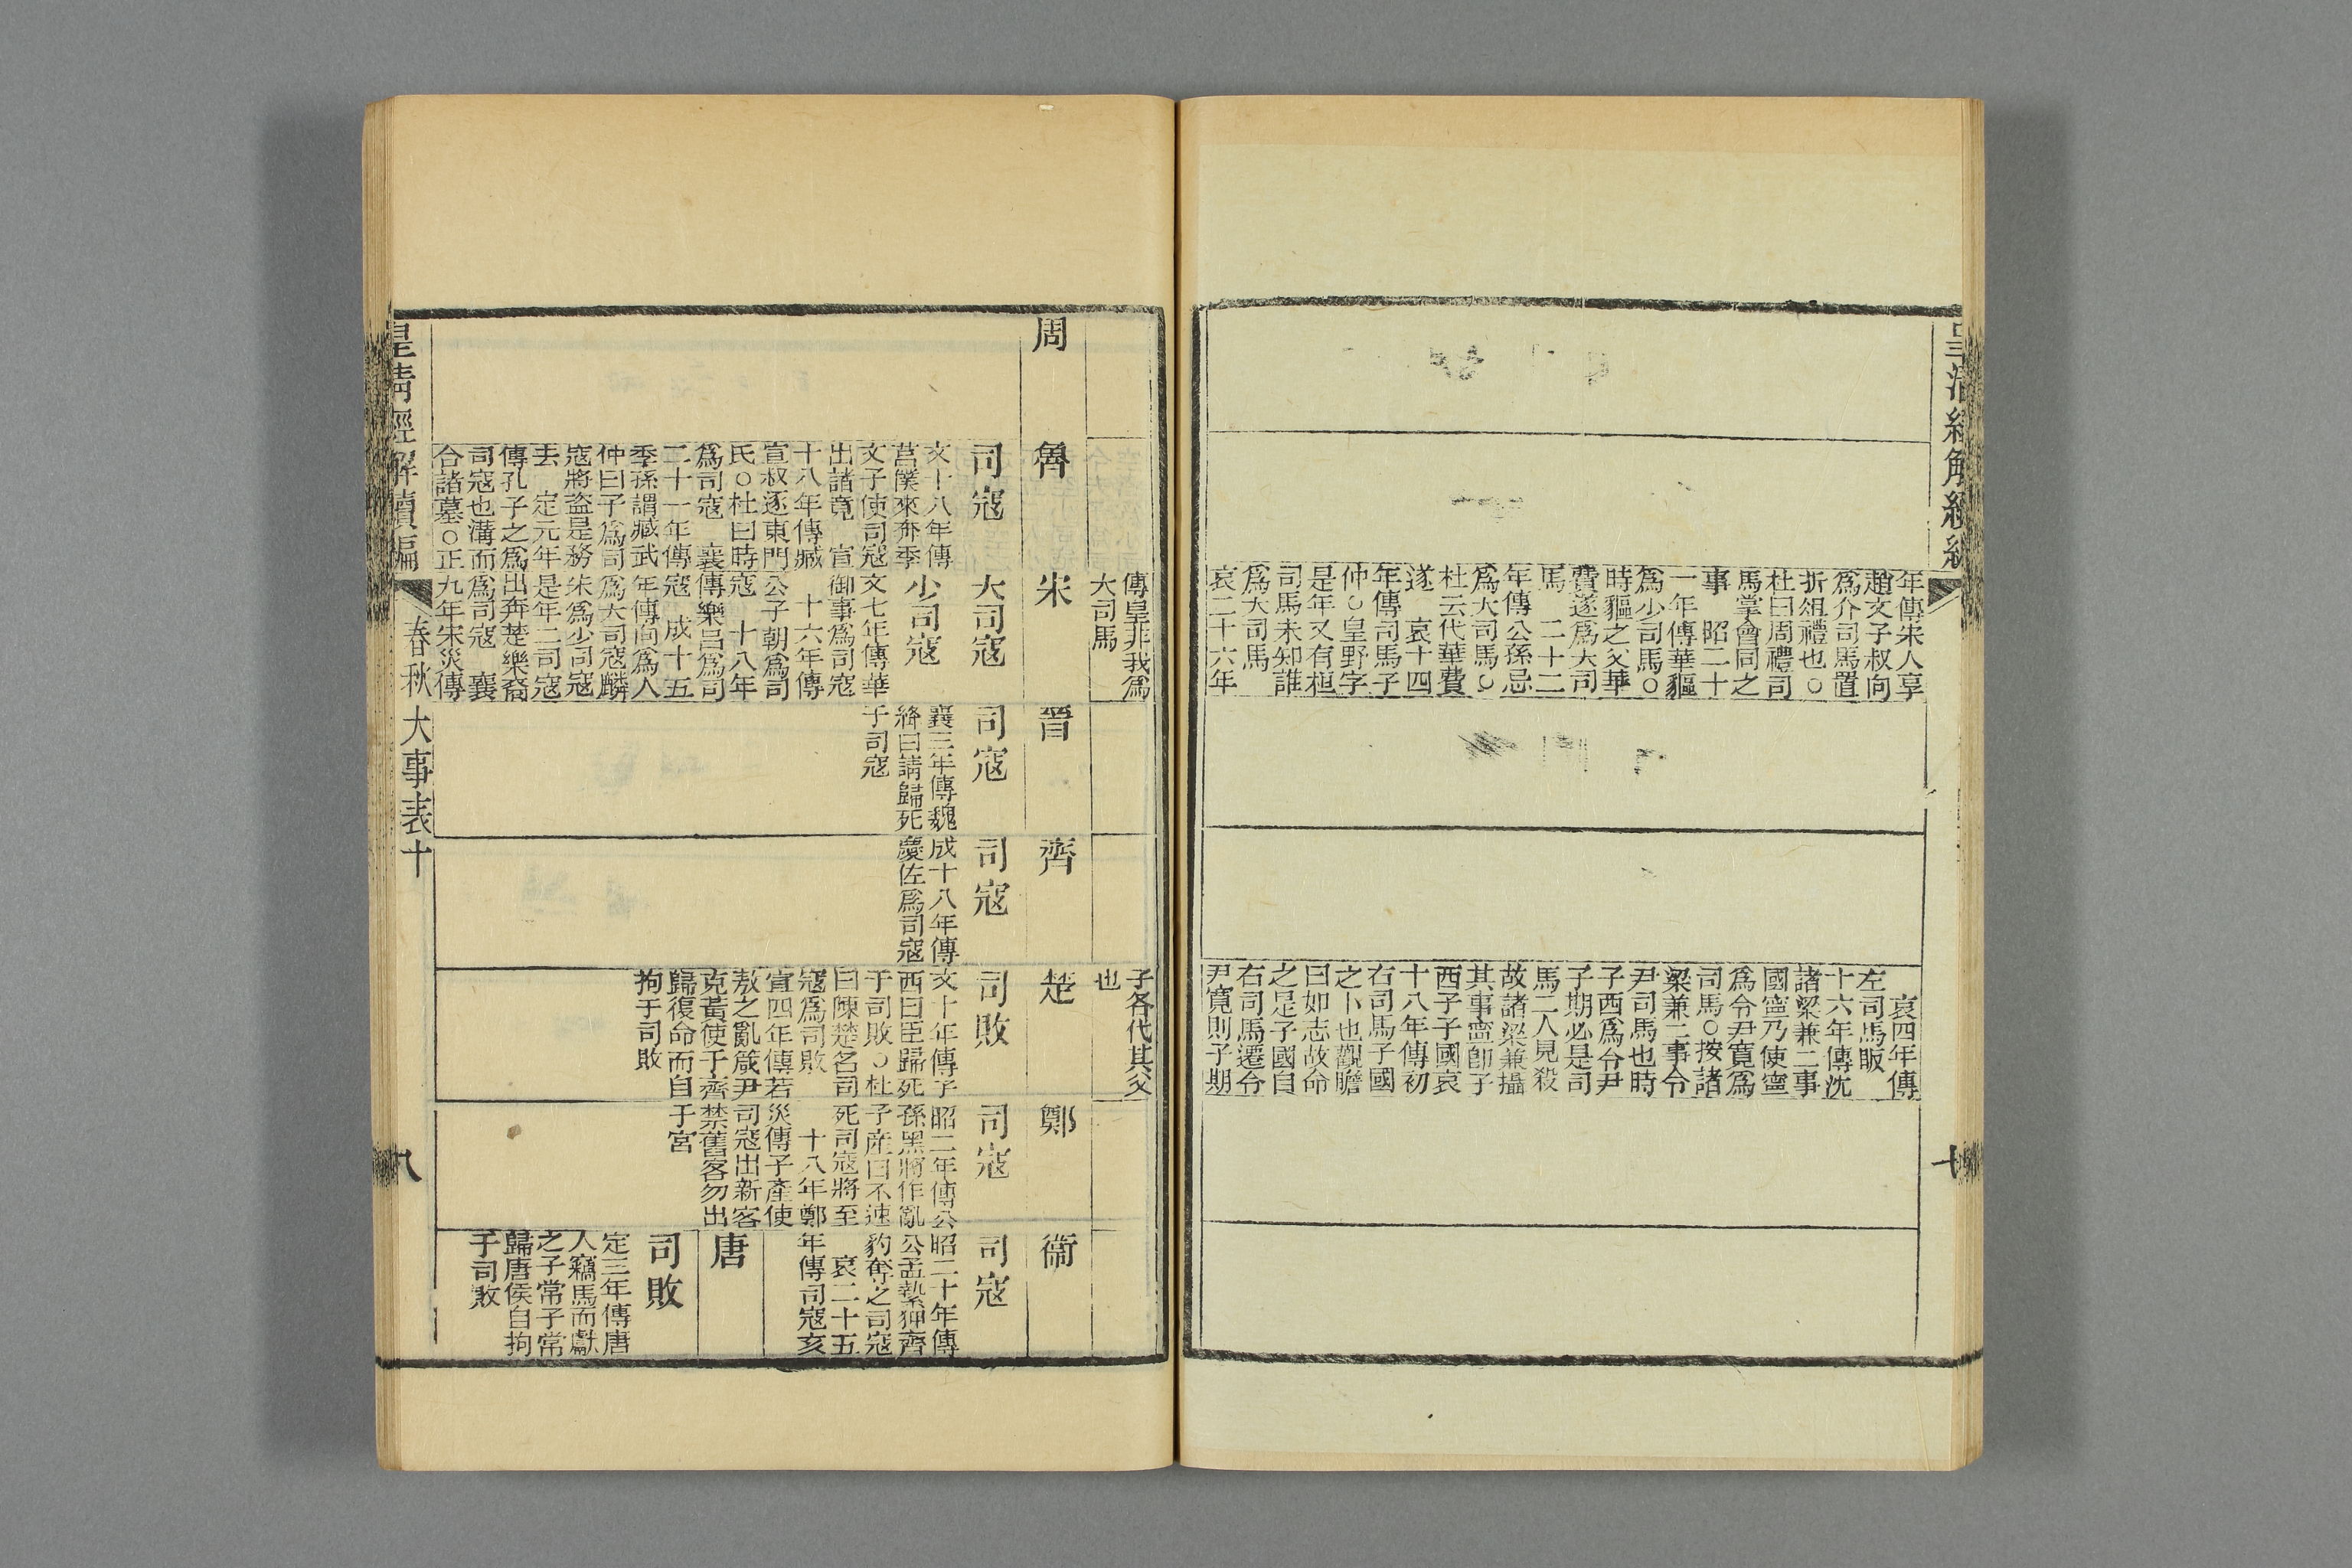 皇清經解續編
年傳宋人享
趙文子叔向
爲介司馬置
折俎禮也○
杜曰周禮司
馬掌會同之
事　昭二十
一年傳華貙
爲少司馬○
時貙之父華
費遂爲大司
馬　二十二
年傳公孫忌
爲大司馬○
杜云代華費
遂　哀十四
年傳司馬子
仲○皇野字
是年又有桓
司馬未知誰
爲大司馬
哀二十六年
哀四年傳
左司馬眅
十六年傳沈
諸梁兼二事
國寧乃使寧
爲令尹寬爲
司馬○按諸
梁兼二事令
尹司馬也時
子西爲令尹
子期必是司
馬二人見殺
故諸梁兼攝
其事寧卽子
西子子國哀
十八年傳初
右司馬子國
之卜也觀瞻
曰如志故命
之是子國自
右司馬遷令
尹寬則子期
傳皇非我爲
大司馬
子各代其父
也
周
魯
司寇
文十八年傳
莒僕來奔季
文子使司寇
出諸竟　宣
十八年傳臧
宣叔逐東門
氏○杜曰時
爲司寇　襄
二十一年傳
季孫謂臧武
仲曰子爲司
寇將盜是務
去　定元年
傳孔子之爲
司寇也溝而
合諸墓○正
宋
大司寇
少司寇
文七年傳華
御事爲司寇
十六年傳
公子朝爲司
寇　十八年
傳樂呂爲司
寇　成十五
年傳向爲人
爲大司寇鱗
朱爲少司寇
是年二司寇
出奔楚樂裔
爲司寇　襄
九年宋災傳
晉
司寇
襄三年傳魏
絳曰請歸死
于司寇
齊
司寇
成十八年傳
慶佐爲司寇
楚
司敗
文十年傳子
西曰臣歸死
于司敗○杜
曰陳楚名司
寇爲司敗
宣四年傳若
敖之亂箴尹
克黃使于齊
歸復命而自
拘于司敗
鄭
司寇
昭二年傳公
孫黑將作亂
子產曰不速
死司寇將至
十八年鄭
災傳子產使
司寇出新客
禁舊客勿出
于宮
衞
司寇
昭二十年傳
公孟縶狎齊
豹奪之司寇
哀二十五
年傳司寇亥
唐
司敗
定三年傳唐
人竊馬而獻
之子常子常
歸唐侯自拘
于司敗
皇清經解續編
春秋大事表十
八